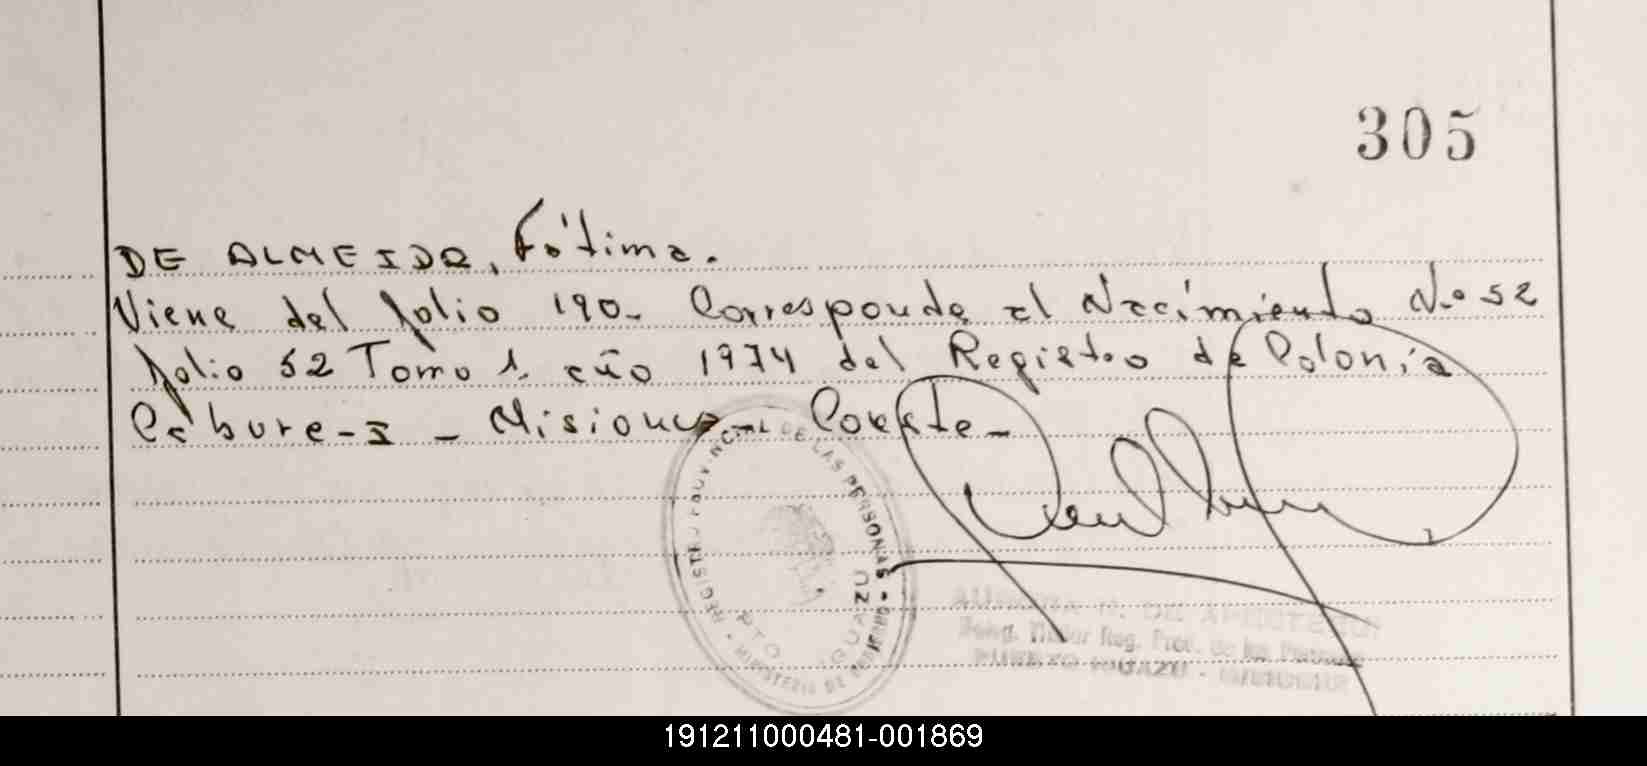 305
DE ALMEIDA, Fátima.
Viene del folio 190- Corresponde al Nacimiento No 52
folio 52 Tomo 1. año 1974 del Registro de Colonia
Cabure-I - Misiones - Conste -
REGISTRO PROVINCIAL DE LAS PERSONAS
MINISTERIO DE
PTO IGUAZU
Reg. Prov. de las Personas
PUERTO IGUAZU - MISIONES
191211000481-001869